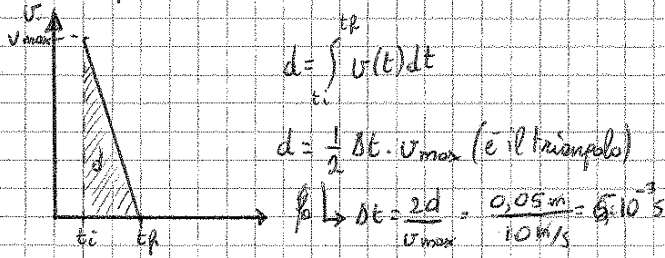 v
v max
d
ti
tf
d = ∫ti^tf v(t) dt
d = 1/2 Δt · v max (è il triangolo)
↳ Δt = 2d/v max = 0,05 m / 10 m/s = 5·10^-3 s